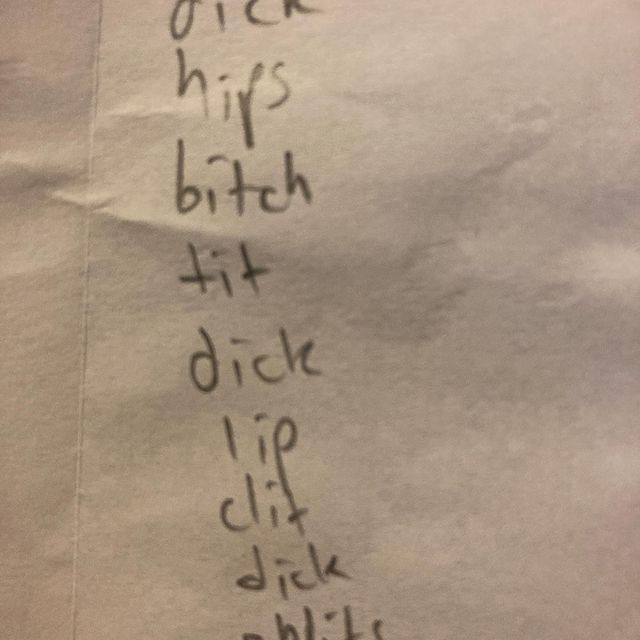 dick
hips
bitch
tit
dick
lip
clit
dick